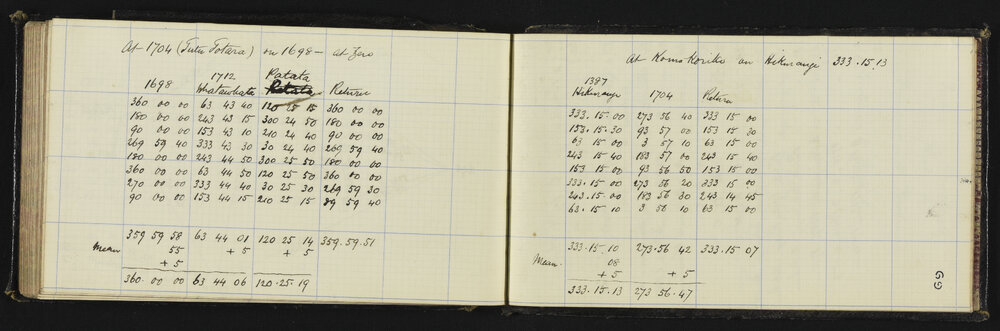 At 1704 (Tutu Totara) on 1698 - at Zero
1712 Patata
1698 Whatawhata Return
360 00 00 63 43 40 120 25 15 360 00 00
180 00 00 243 43 15 300 24 50 180 00 00
90 00 00 153 43 10 210 24 40 90 00 00
269 59 40 333 43 30 30 24 40 269 59 40
180 00 00 243 44 50 300 25 50 180 00 00
360 00 00 63 44 50 120 25 50 360 00 00
270 00 00 333 44 40 30 25 30 269 59 30
90 00 00 153 44 15 210 25 15 89 59 40
359 59 58 63 44 01 120 25 14 359.59.51
Mean 55 + 5 + 5
+ 5
360.00 00 63 44 06 120.25.19
At Komokoriko on Hikurangi 333.15.13
1397
Hikurangi 1704 Return
333.15.00 273 56 40 333 15 00
153.15.30 93 57 00 153 15 30
63 15 00 3 57 10 63 15 00
243 15 40 183 57 00 243 15 40
153 15 00 93 56 50 153 15 00
333.15.00 273 56 20 333 15 00
243.15.00 183 56 30 243 14 45
63.15 10 3 56 10 63 15 00
333.15.10 273.56 42 333.15 07
Mean. 08
+ 5 + 5
333.15.13 273 56.47
69